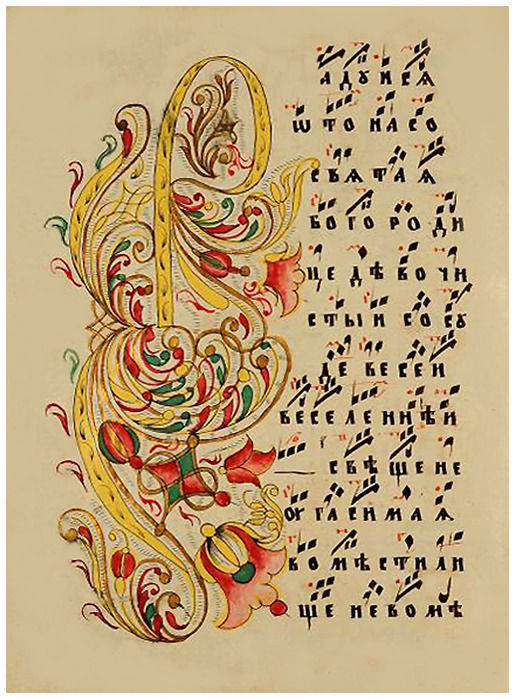 Р
адуисѧ
што насо
свѧтаѧ
богороди
це дѣвочи
стыи сосꙋ
де весеи
веселеннѣи
свѣщене
оугасимаѧ
вомѣстили
ще невомѣ